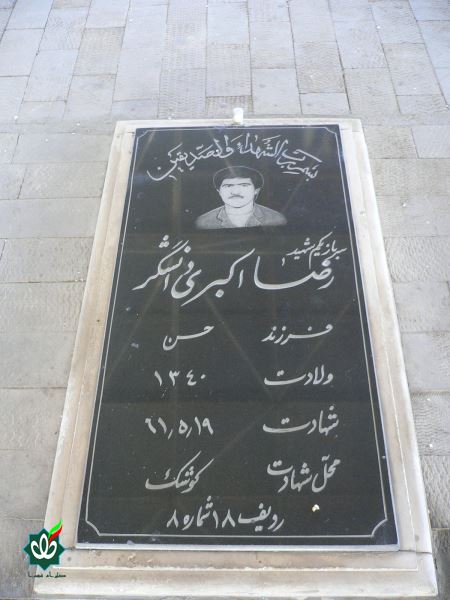 بسم رب الشهداء والصدیقین
سرباز یکم شهید
رضا اکبری دانشگر
فرزند حسن
ولادت ۱۳۴۰
شهادت ۶۱٫۵٫۱۹
محل شهادت کوشک
ردیف ۱۸ شماره ۸